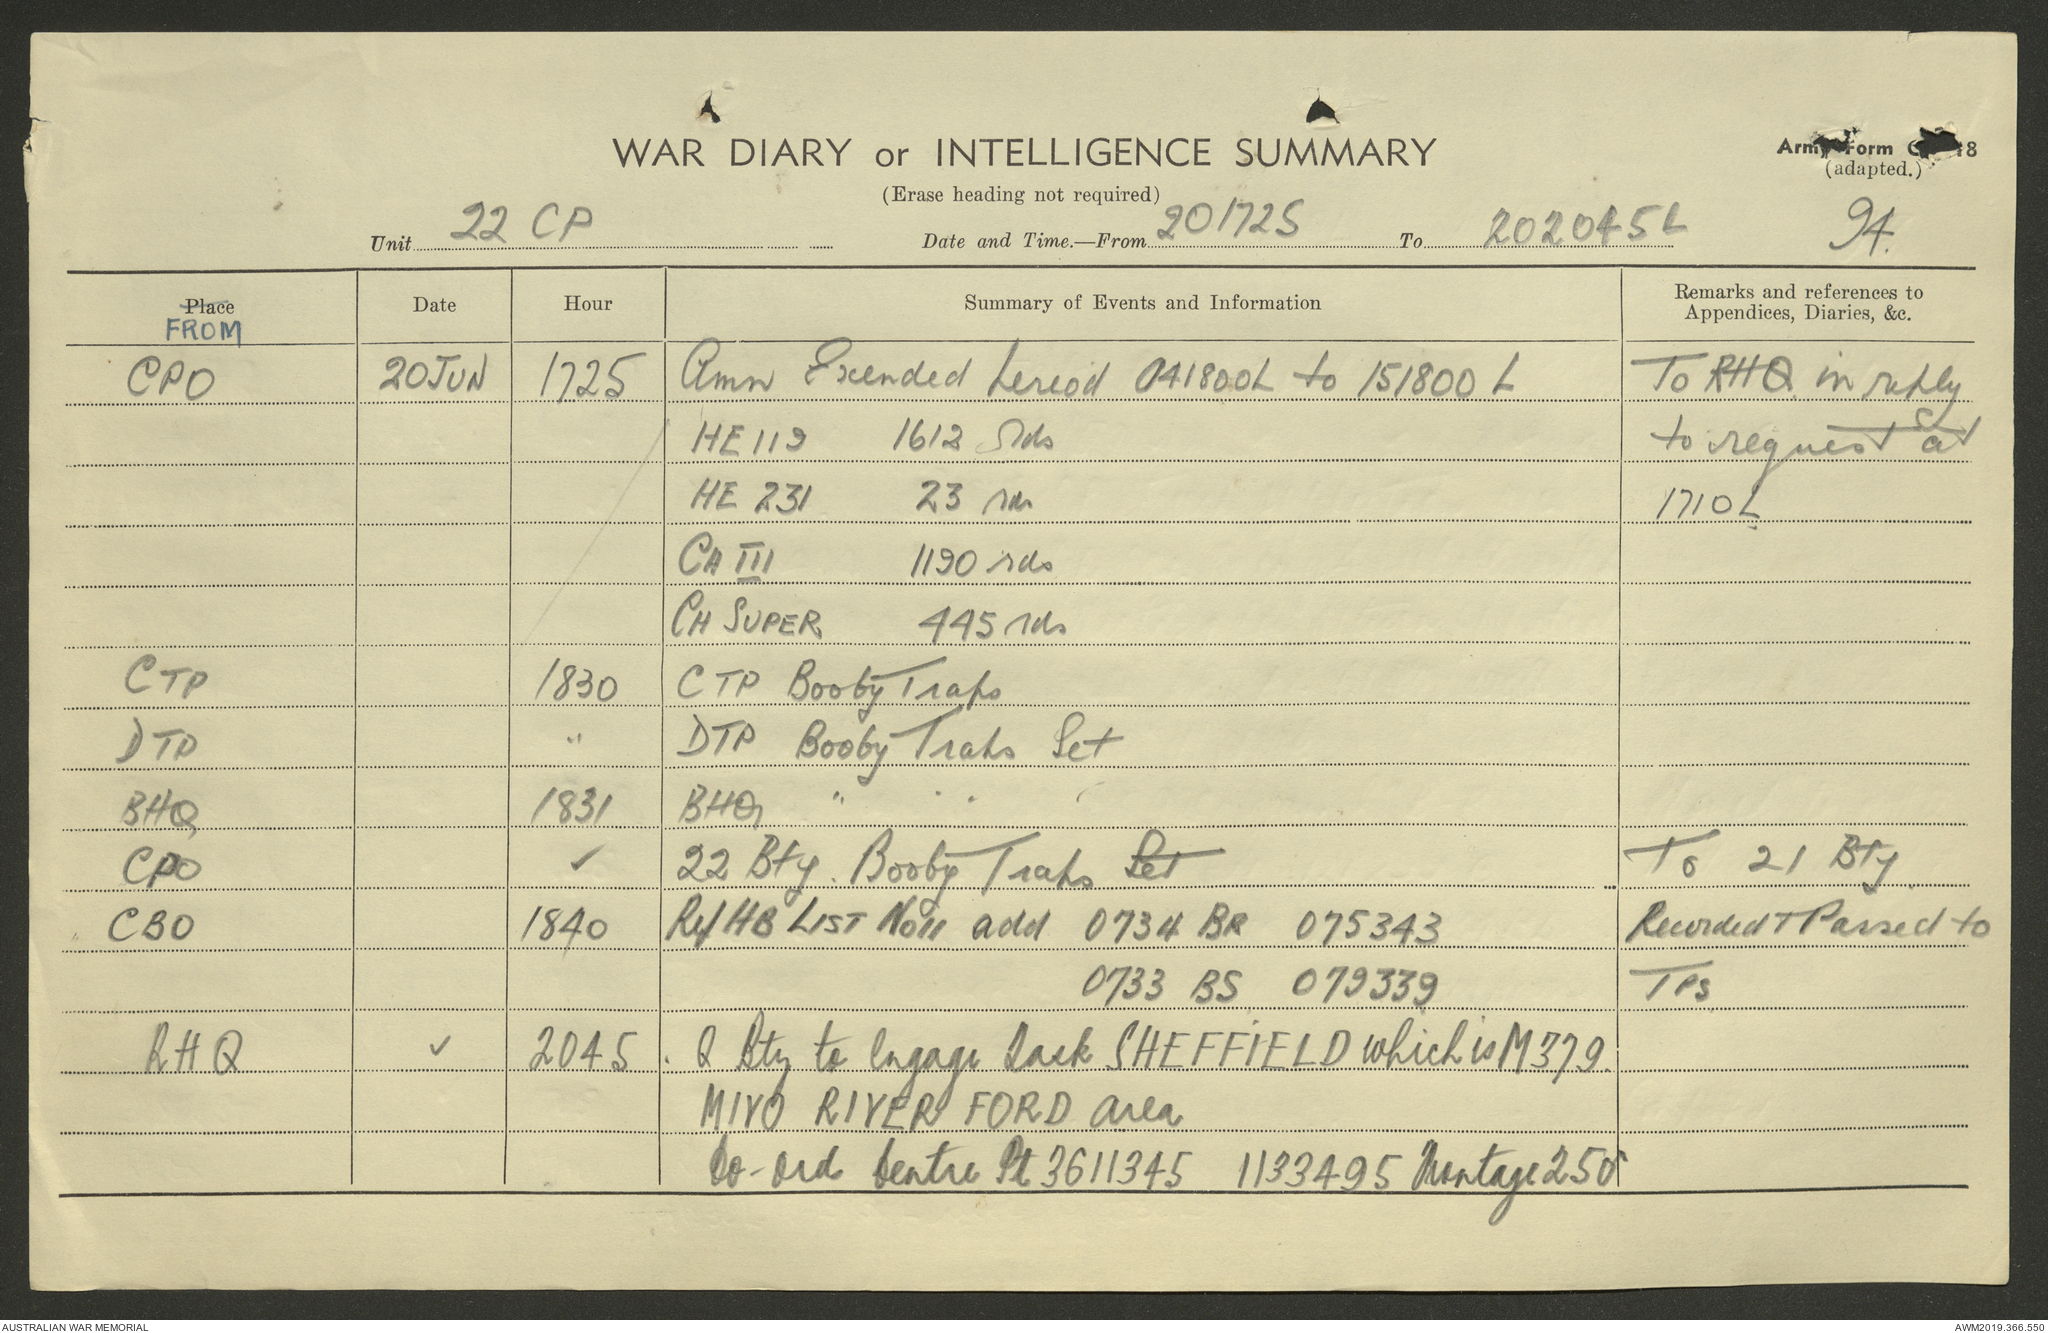 WAR DIARY or INTELLIGENCE SUMMARY
Army Form C 18
(adapted.)
(Erase heading not required)
Unit 22 CP Date and Time.—From 201725 To 202045L 94.
Place Date Hour Summary of Events and Information Remarks and references to Appendices, Diaries, &c.
FROM
CPO 20 JUN 1725 Amn Exended Period 041800L to 151800L To RHQ in reply
HE 119 1612 rds to request at
HE 231 23 rds 1710L
CH III 1190 rds
CH SUPER 445 rds
C TP 1830 C TP Booby Traps
D TP " DTP Booby Traps Set
BHQ 1831 BHQ " " "
CPO ✓ 22 Bty. Booby Traps Set To 21 Bty.
CBO 1840 Ref HB LIST No 11 add 0734 BR 075343 Recorded + Passed to
0733 BS 079339 TPs
RHQ ✓ 2045 Q Bty to Engage Task SHEFFIELD which is M379.
MIVO RIVER FORD area
Co-ord Centre Pt 3611345 1133495 Frontage 250
AUSTRALIAN WAR MEMORIAL
AWM2019.366.550